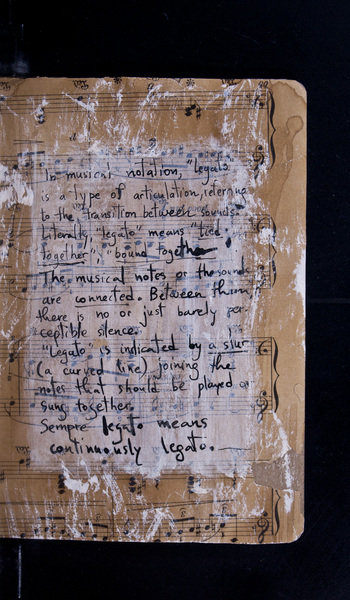 In musical notation, "legato"
is a type of articulation, refering
to the transition between sounds.
Literally, "legato" means "tied
together", "bound together
The musical notes or the sounds
are connected. Between them,
there is no or just barely per
ceptible silence.
"Legato" is indicated by a slur
(a curved line) joining the
notes that should be played or
sung together.
Sempre legato means
continuously legato.